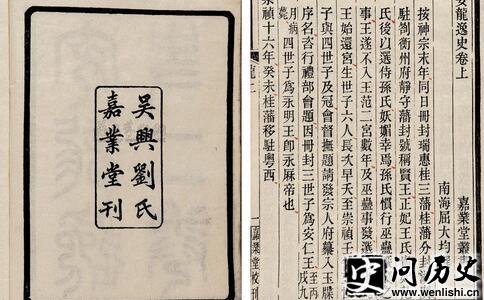 吳興劉氏
嘉業堂刊
龍逸史卷上 嘉業堂叢
南海屈大均
按神宗末年同日冊封瑞惠桂三藩桂藩分封
駐蹕衡州府靜守藩封號稱賢王正妃王氏
氏後以選侍孫氏妖媚幸焉孫氏慣行巫蠱
事王遂不入王范二宮數年及巫蠱事發選
王始還宮生世子六人長次早夭至崇禎壬
子與四世子及冠會督撫題請發宗人府纂入玉牒
序名咨行禮部會題因冊封三世子為安仁王至丙戌九
月病薨四世子為永明王卽永厤帝也
崇禎十六年癸未桂藩移駐粵西
龍二
嘉業堂校刊
史问历史
www.wenlishi.cn